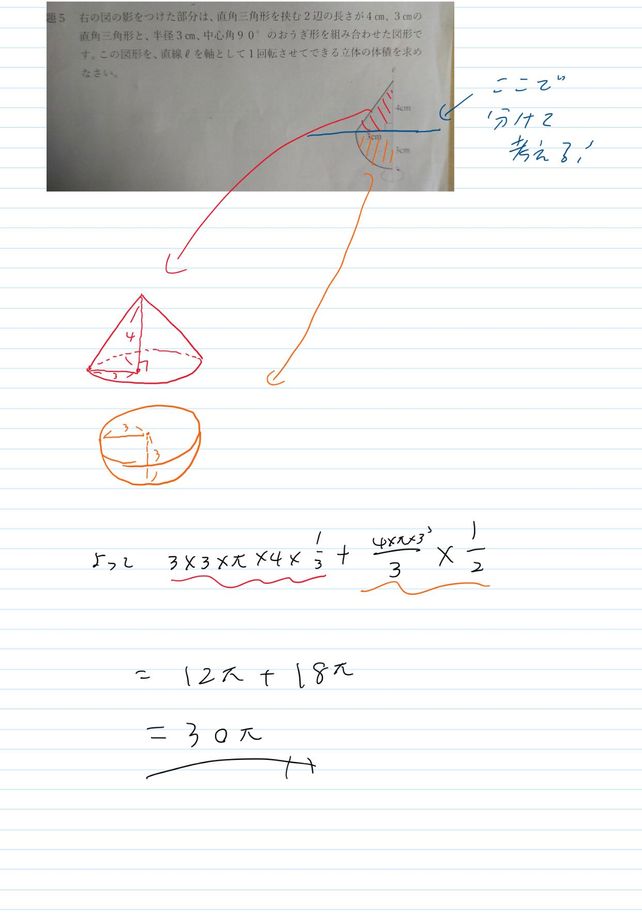 題5 右の図の影をつけた部分は、直角三角形を挟む2辺の長さが4cm、3cmの
直角三角形と、半径3cm、中心角90°のおうぎ形を組み合わせた図形で
す。この図形を、直線ℓを軸として1回転させてできる立体の体積を求め
なさい。
ℓ
4cm
3cm
3cm
ここで
分けて
考える!
4
3
3
3
よって 3×3×π×4×1/3 + 4×π×3³/3 × 1/2
= 12π + 18π
= 30π